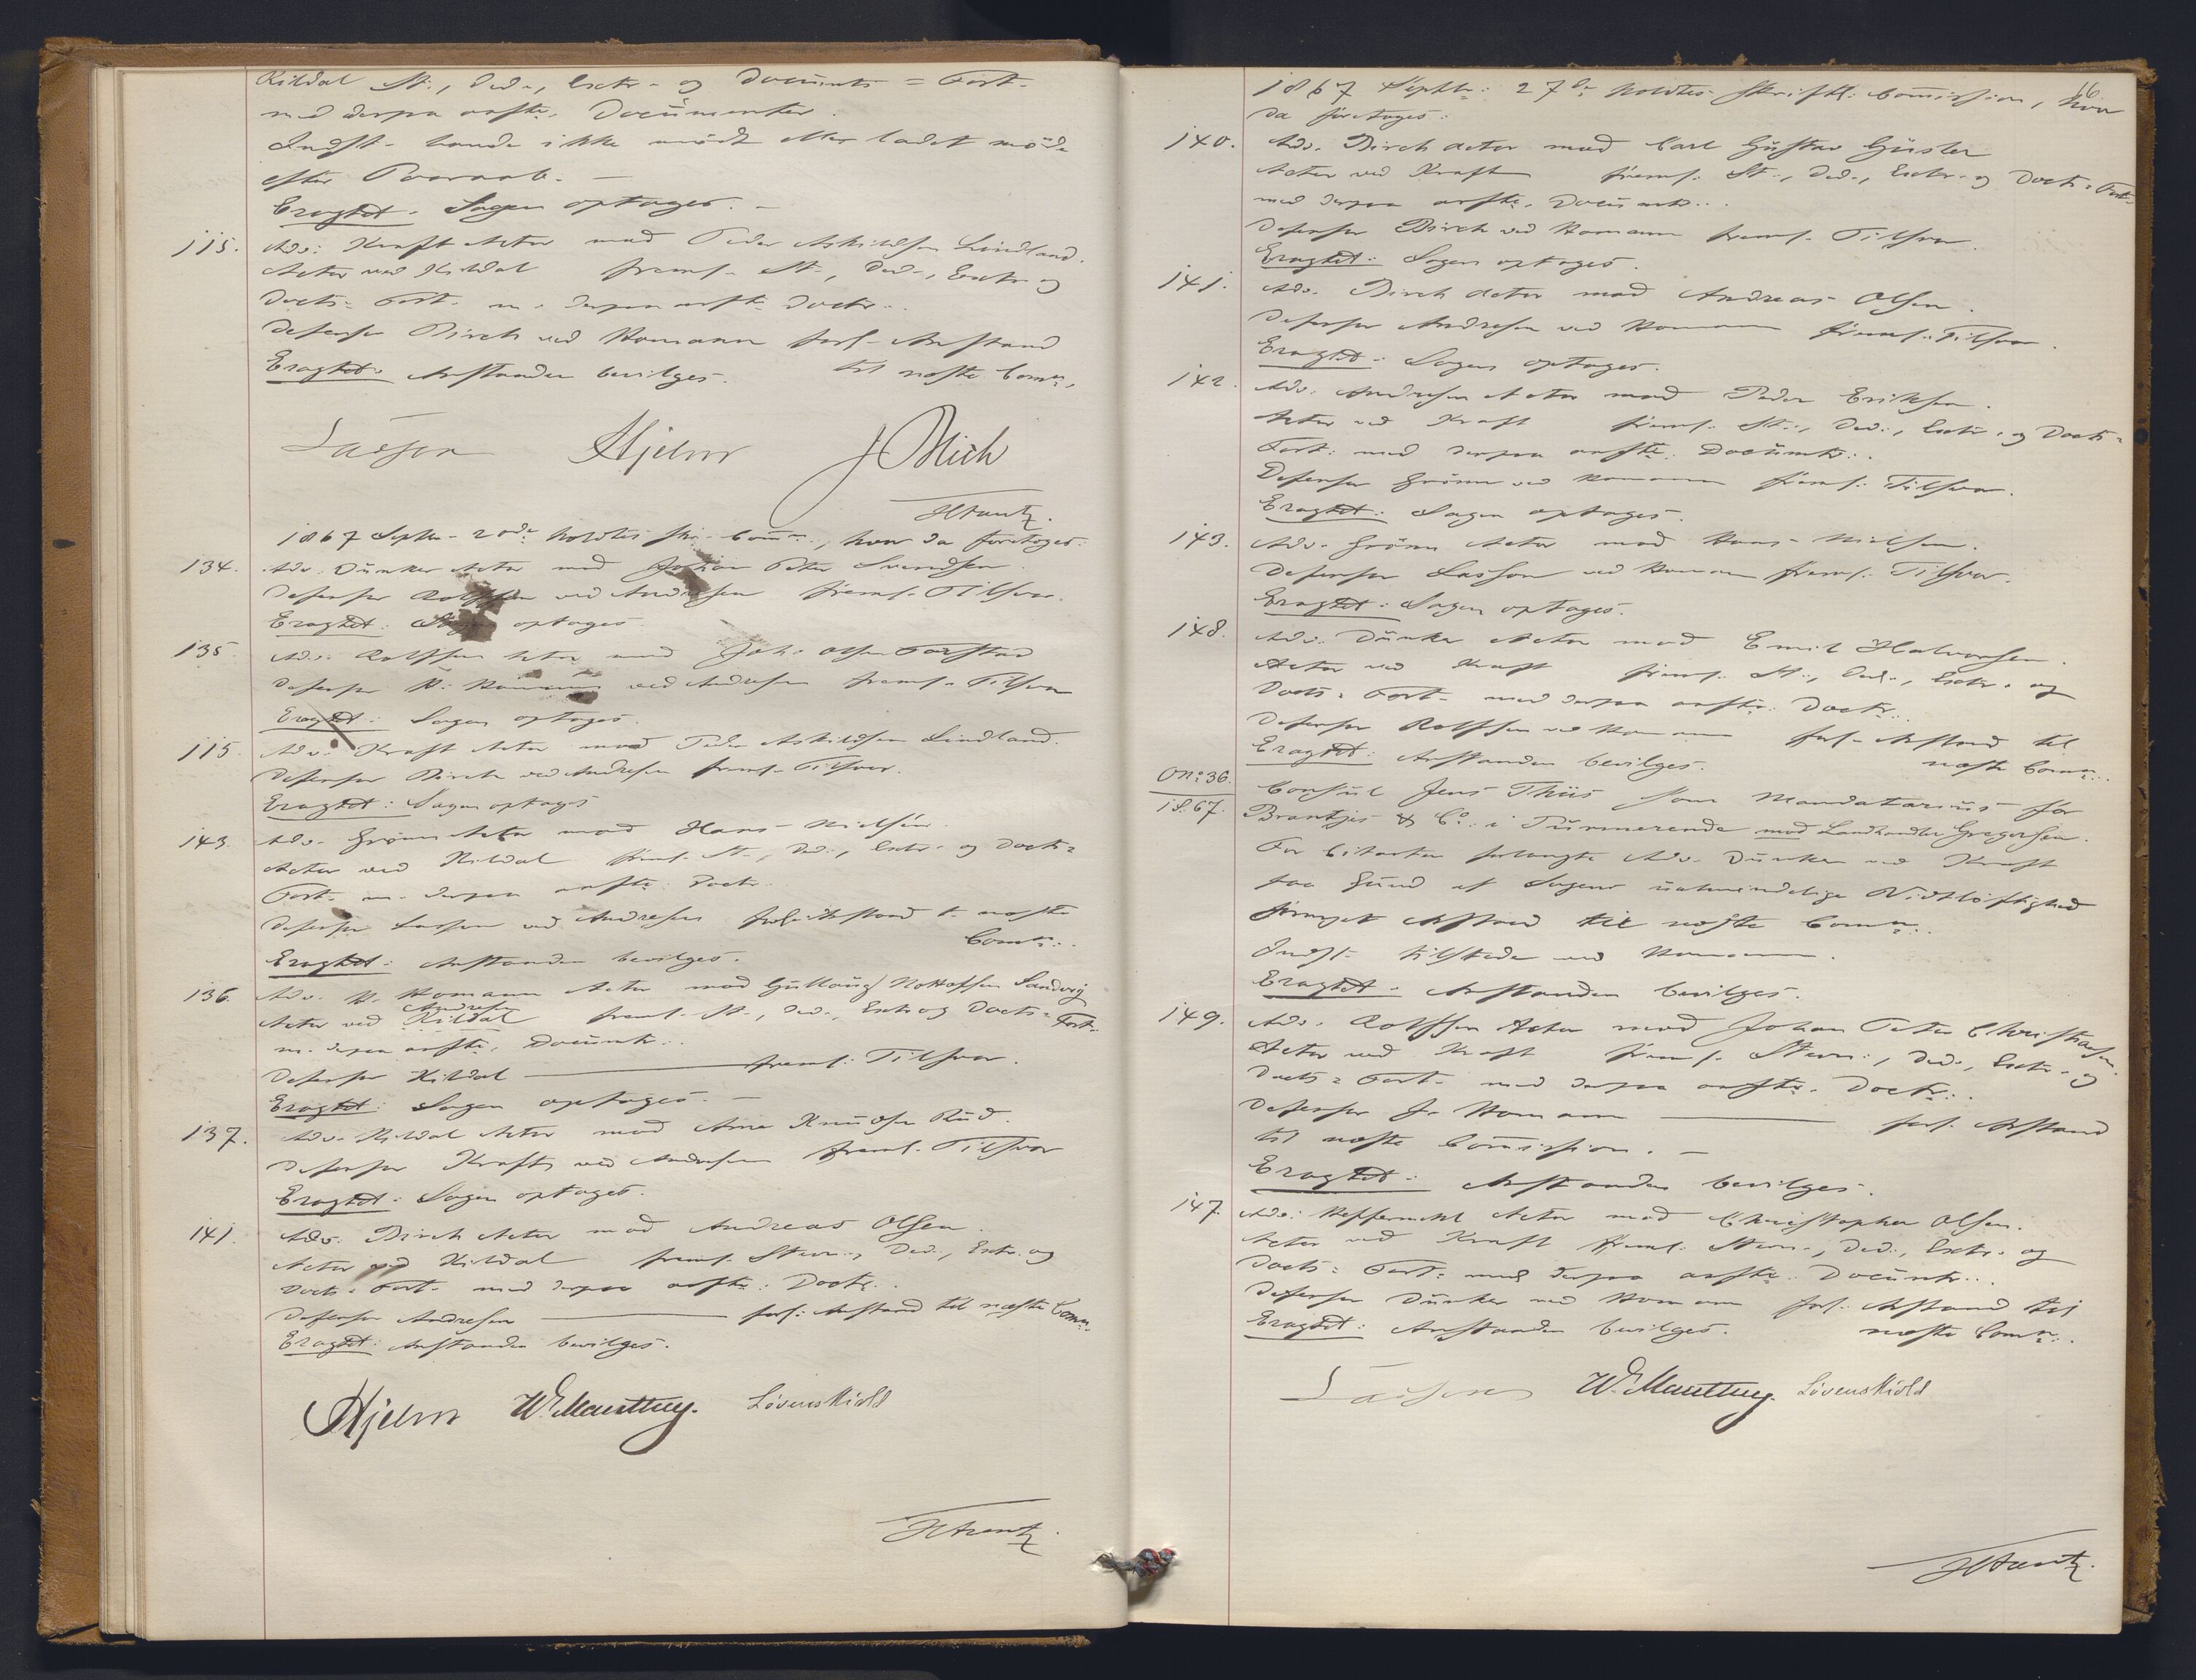 Kildal St., Ded-, Extr- og Documts = Fort-
med derpaa anfte. Documenter.
Indst- havde ikke mødt eller ladet møde
efter Paaraab. —
Eragtet. Sagen optages. —
115. Adv: Kraft Actor mod Peder Askildsen Lindland.
Actor ved Kildal freml- St-, Ded-, Extr- og
Docts= Fort. m. derpaa anfte Doctr..
Defensor Birch ved Homann forl- Anstand
til næste Comn.
Eragtet. Anstanden bevilges.
Lasson Hjelm J Mich
1867 Septbr- 20de holdtes skr- Comn., hvor da foretoges.
134. Adv. Dunker Actor mod Johan Peter Svendsen.
Defensor Rolfsen ved Andresen freml- Tilsvar.
Eragtet: Sagen optages.
135. Adv. Rolfsen Actor mod Joh: Olsen
Defensor P. Homann ved Andresen freml- Tilsvar
Eragtet: Sagen optages.
115. Adv. Kraft Actor mod Peder Askildsen Lindland.
Defensor Birch ved Andresen freml- Tilsvar.
Eragtet: Sagen optages
143. Adv- Grønn Actor mod Hans Nielsen.
Actor ved Kildal freml. St-, Ded:, Extr- og Docts=
Fort- m. derpaa anfte: Doctr.
Defensor Lasson ved Andresen forl: Anstand t. næste
Comn:.
Eragtet: Anstanden bevilges.
136. Adv. P. Homann Actor mod Gulloug Sandvig
Andresen
Actor ved Kildal freml- St-, Ded-, Extr og Docts= Fort-
m. derpaa anfte. Documtr:.
Defensor Kildal — freml: Tilsvar.
Eragtet: Sagen optages. —
137. Adv. Kildal Actor mod Arne Knudsen Rud.
Defensor Kraft ved Andresen freml- Tilsvar
Eragtet: Sagen optages.
141. Adv. Birch Actor mod Andreas Olsen.
Actor ved Kildal freml. Stevn-, Ded-, Extr- og
Docts= Fort- med derpaa anfte: Doctr:.
Defensor Andresen — forl: Anstand til næste Comn.
Eragtet: Anstanden bevilges.
Hjelm Løvenskiold
16
1867 Septbr: 27de holdtes skriftl: Commission, hvor
da foretoges:
140. Adv. Birch Actor mod Carl Gustav Gusler
Actor ved Kraft freml: St-, Ded-, Extr- og Doctr= Fort-
med derpaa anfte. Documtr..
Defensor Birch ved Homann freml- Tilsvar.
Eragtet: Sagen optages.
141. Adv. Birch Actor mod Andreas Olsen.
Defensor Andresen ved Homann freml: Tilsvar.
Eragtet: Sagen optages.
142. Adv. Andresen Actor mod Peder Eriksen.
Actor ved Kraft freml- St:, Ded:, Extr- og Docts=
Fort: med derpaa anfte: Documtr:.
Defensor Grønn ved Homann freml: Tilsvar.
Eragtet: Sagen optages.
143. Adv. Grønn Actor mod Hans Nielsen.
Defensor Lasson ved Homann freml: Tilsvar.
Eragtet: Sagen optages.
148. Adv. Dunker Actor mod Emil Halvorsen.
Actor ved Kraft freml: St:, Ded-, Extr- og
Docts= Fort- med derpaa anfte: Doctr:.
Defensor Rolfsen ved Homann forl- Anstand til
næste Comn:.
Eragtet: Anstanden bevilges.
O No: 36.
1867. Consul Jens Thiis som Mandatarius for
Brantjes & Co. i Purmerende mod Landhandler Gregersen.
For Citanten forlangte Adv. Dunker ved Kraft
paa Grund af Sagens ualmindelige Vidtløftighed
fornyet Anstand til næste Comn:.
Indst- tilstede ved Homann.
Eragtet. Anstanden bevilges.
149. Adv. Rolfsen Actor mod Johan Peter Christiansen.
Actor ved Kraft freml. Stevn:, Ded-, Extr- og
Docts= Fort- med derpaa anfte. Doctr:.
Defensor J. Homann — forl. Anstand
til næste Commission. —
Eragtet: Anstanden bevilges.
147. Adv: Heffermehl Actor mod Christopher Olsen.
Actor ved Kraft freml. Stevn-, Ded-, Extr- og
Docts= Fort: med derpaa anfte: Documtr:.
Defensor Dunker ved Homann forl. Anstand til
næste Comn:.
Eragtet: Anstanden bevilges.
Lasson Løvenskiold